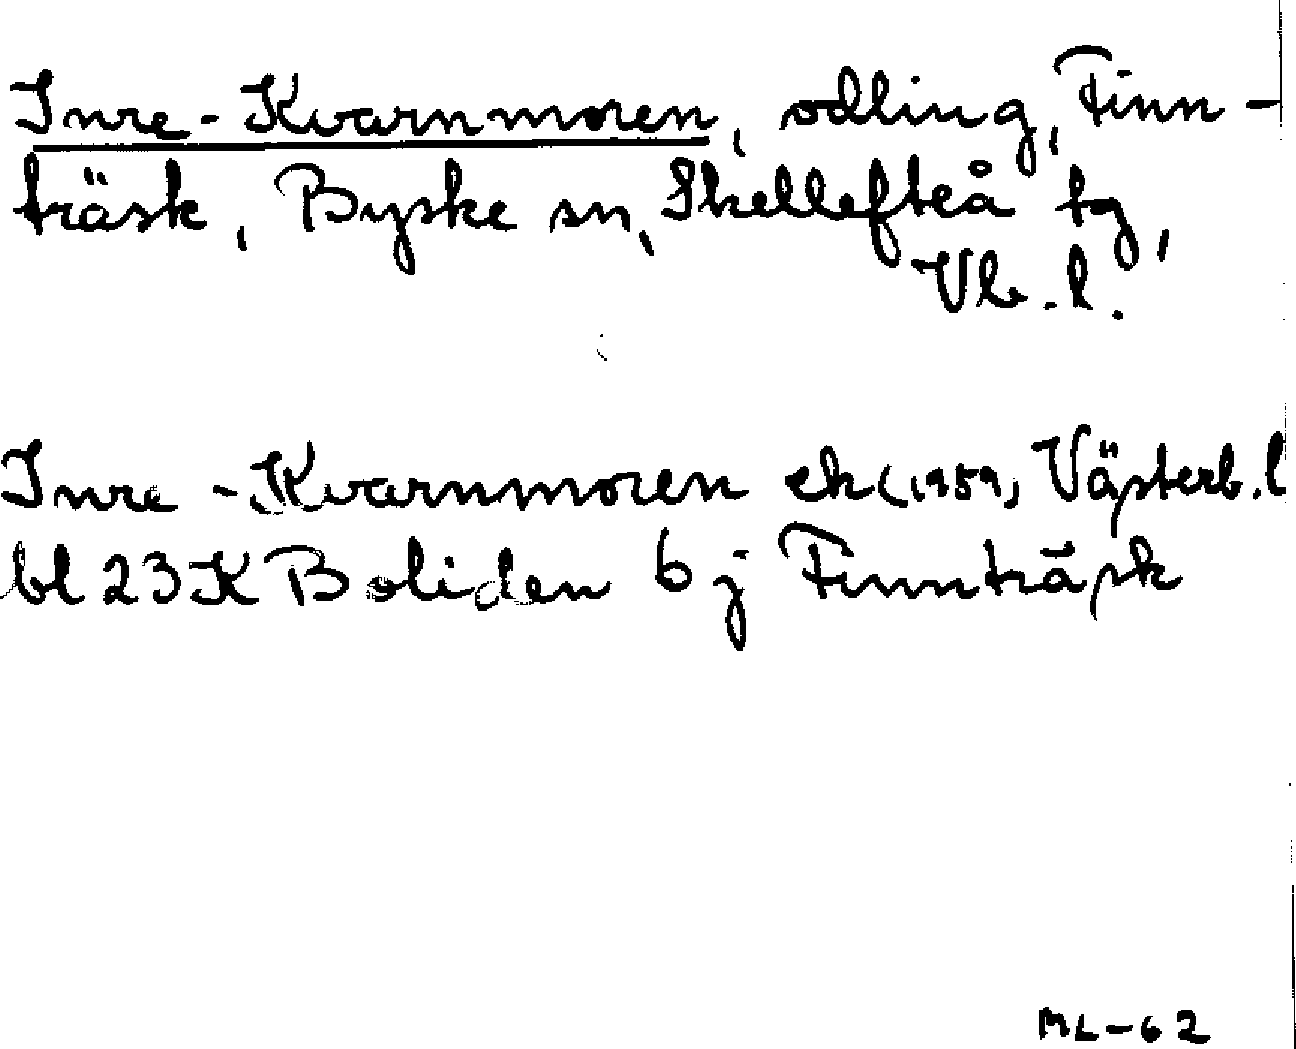 Inre-Kvarnmoren, odling, Finn-
träsk, Byske sn, Skellefteå tg,
Vb. l.
Inre-Kvarnmoren ek (1959) Västerb. l
bl 23K Boliden 6j Finnträsk
ML-62